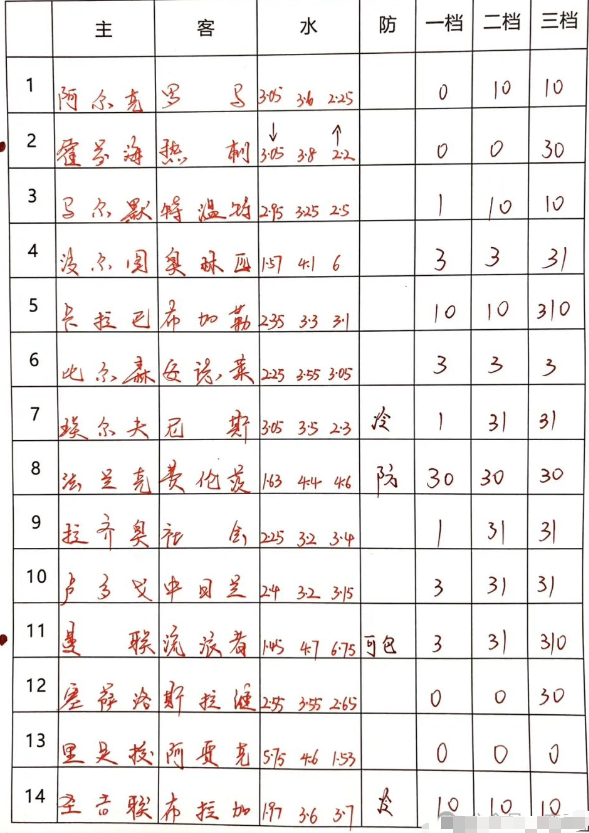 主 客 水 防 一档 二档 三档
1 阿尔克 罗马 3.05 3.6 2.25 0 10 10
2 霍芬海 热刺 3.05 3.8 2.2 0 0 30
3 马尔默 特温特 2.95 3.25 2.5 1 10 10
4 波尔图 奥林匹 1.57 4.1 6 3 3 31
5 卡拉巴 布加勒 2.35 3.3 3.1 10 10 310
6 比尔森 安德莱 2.25 3.55 3.05 3 3 3
7 埃尔夫 尼斯 3.05 3.5 2.3 冷 1 31 31
8 法兰克 费伦茨 1.63 4.4 4.6 防 30 30 30
9 拉齐奥 社会 2.25 3.2 3.4 1 31 31
10 卢多戈 中日兰 2.4 3.2 3.15 3 31 31
11 曼联 流浪者 1.45 4.7 6.75 可包 3 31 310
12 塞萨洛 斯拉维 2.55 3.55 2.65 0 0 30
13 里是投 阿贾克 5.75 4.6 1.53 0 0 0
14 圣吉联 布拉加 1.97 3.6 3.7 冷 10 10 10